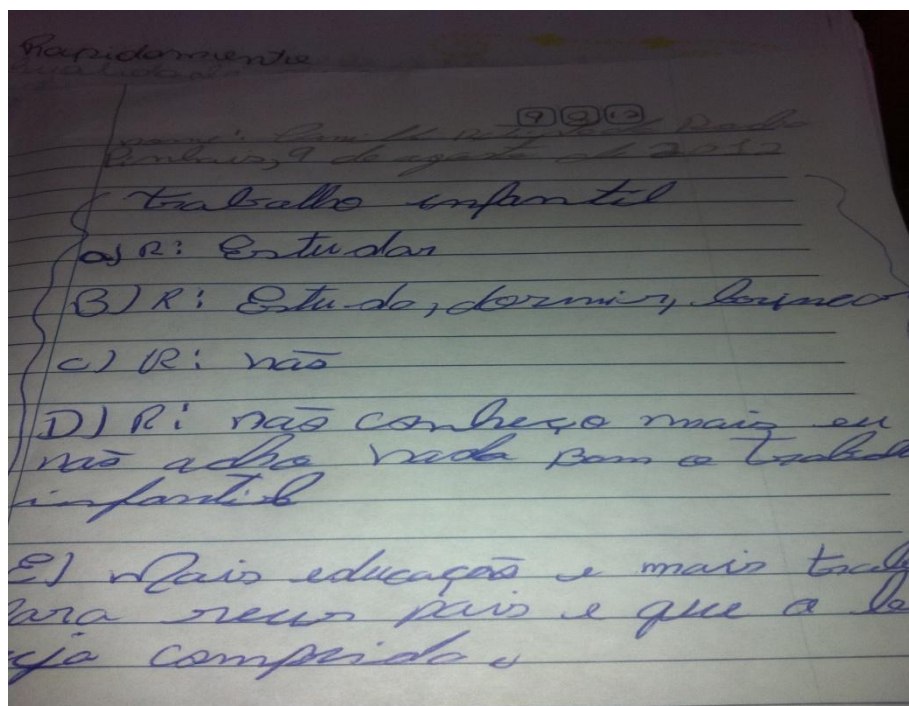 Rapidamente
9 8 12
Pinhais, 9 de agosto de 2012
trabalho infantil
a) R: Estudar
B) R: Estudo, dormir,
c) R: não
D) R: não conheço mais eu
não acho nada bom o
infantil
E) Mais educação e mais
para seus pais e que a
comprida.